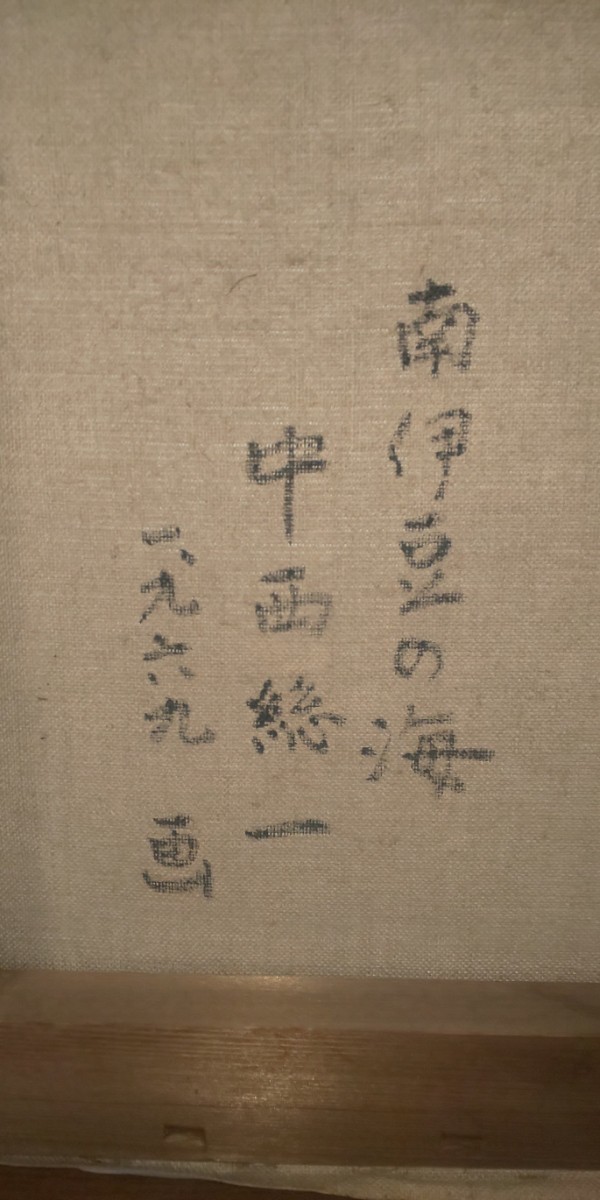 南伊豆の海
中西総一
一九六九 画